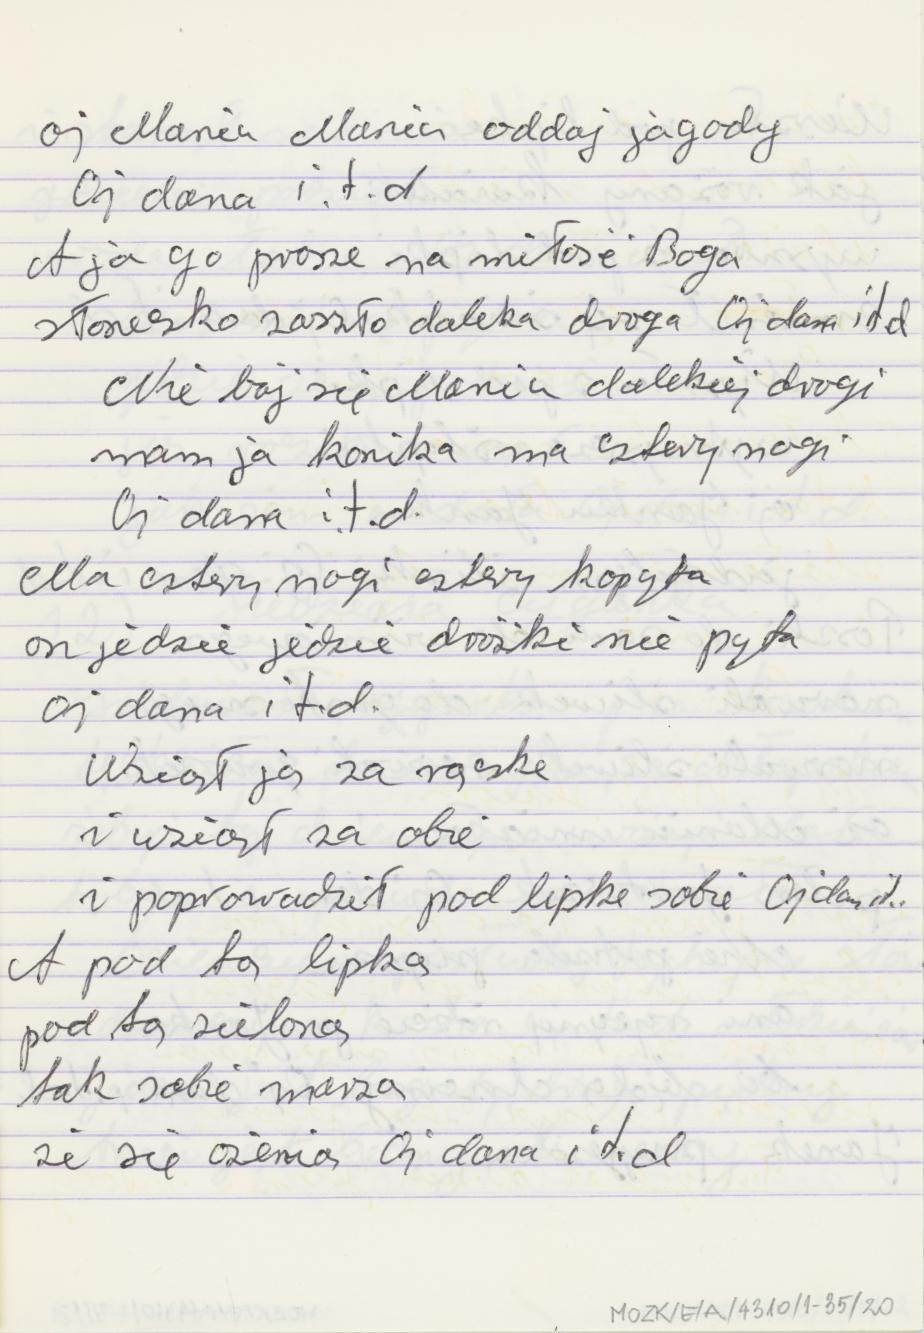 oj Maniu Maniu oddaj jagody
Oj dana i.t.d
A ja go prosze na miłość Boga
słoneczko zaszło daleka droga Oj dana itd
Nie bój się Maniu dalekiej drogi
mam ja konika ma cztery nogi
Oj dana i.t.d.
Ma cztery nogi cztery kopyta
on jedzie jedzie dróżki nie pyta
oj dana i t.d.
Wziął ją za rączke
i wziął za obie
i poprowadził pod lipke sobie Oj dan it..
A pod tą lipką
pod tą zieloną
tak sobie marzą
że się ożenią Oj dana i t.d
MOZK/E/A/4310/1-35/20